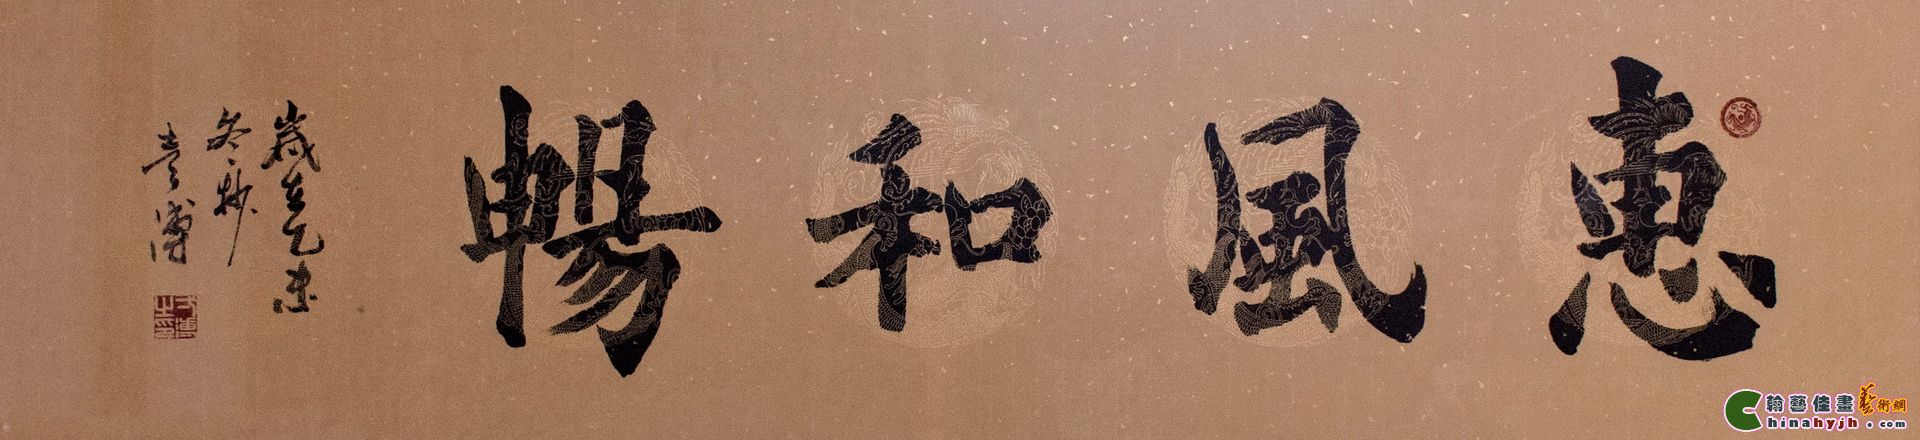 惠風和暢
歲在乙未
冬杪
翰藝佳畫藝術網
Chinahyjh.com